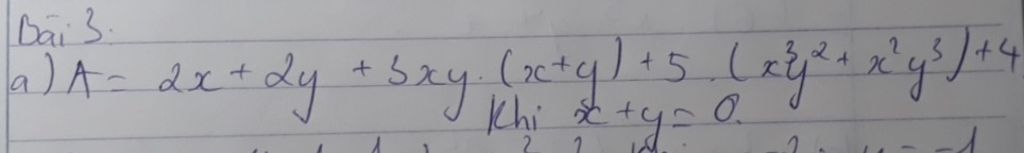 Bài 3:
a) A = 2x + 2y + 3xy. (x+y) + 5. (x³y² + x²y³) + 4
Khi x + y = 0.